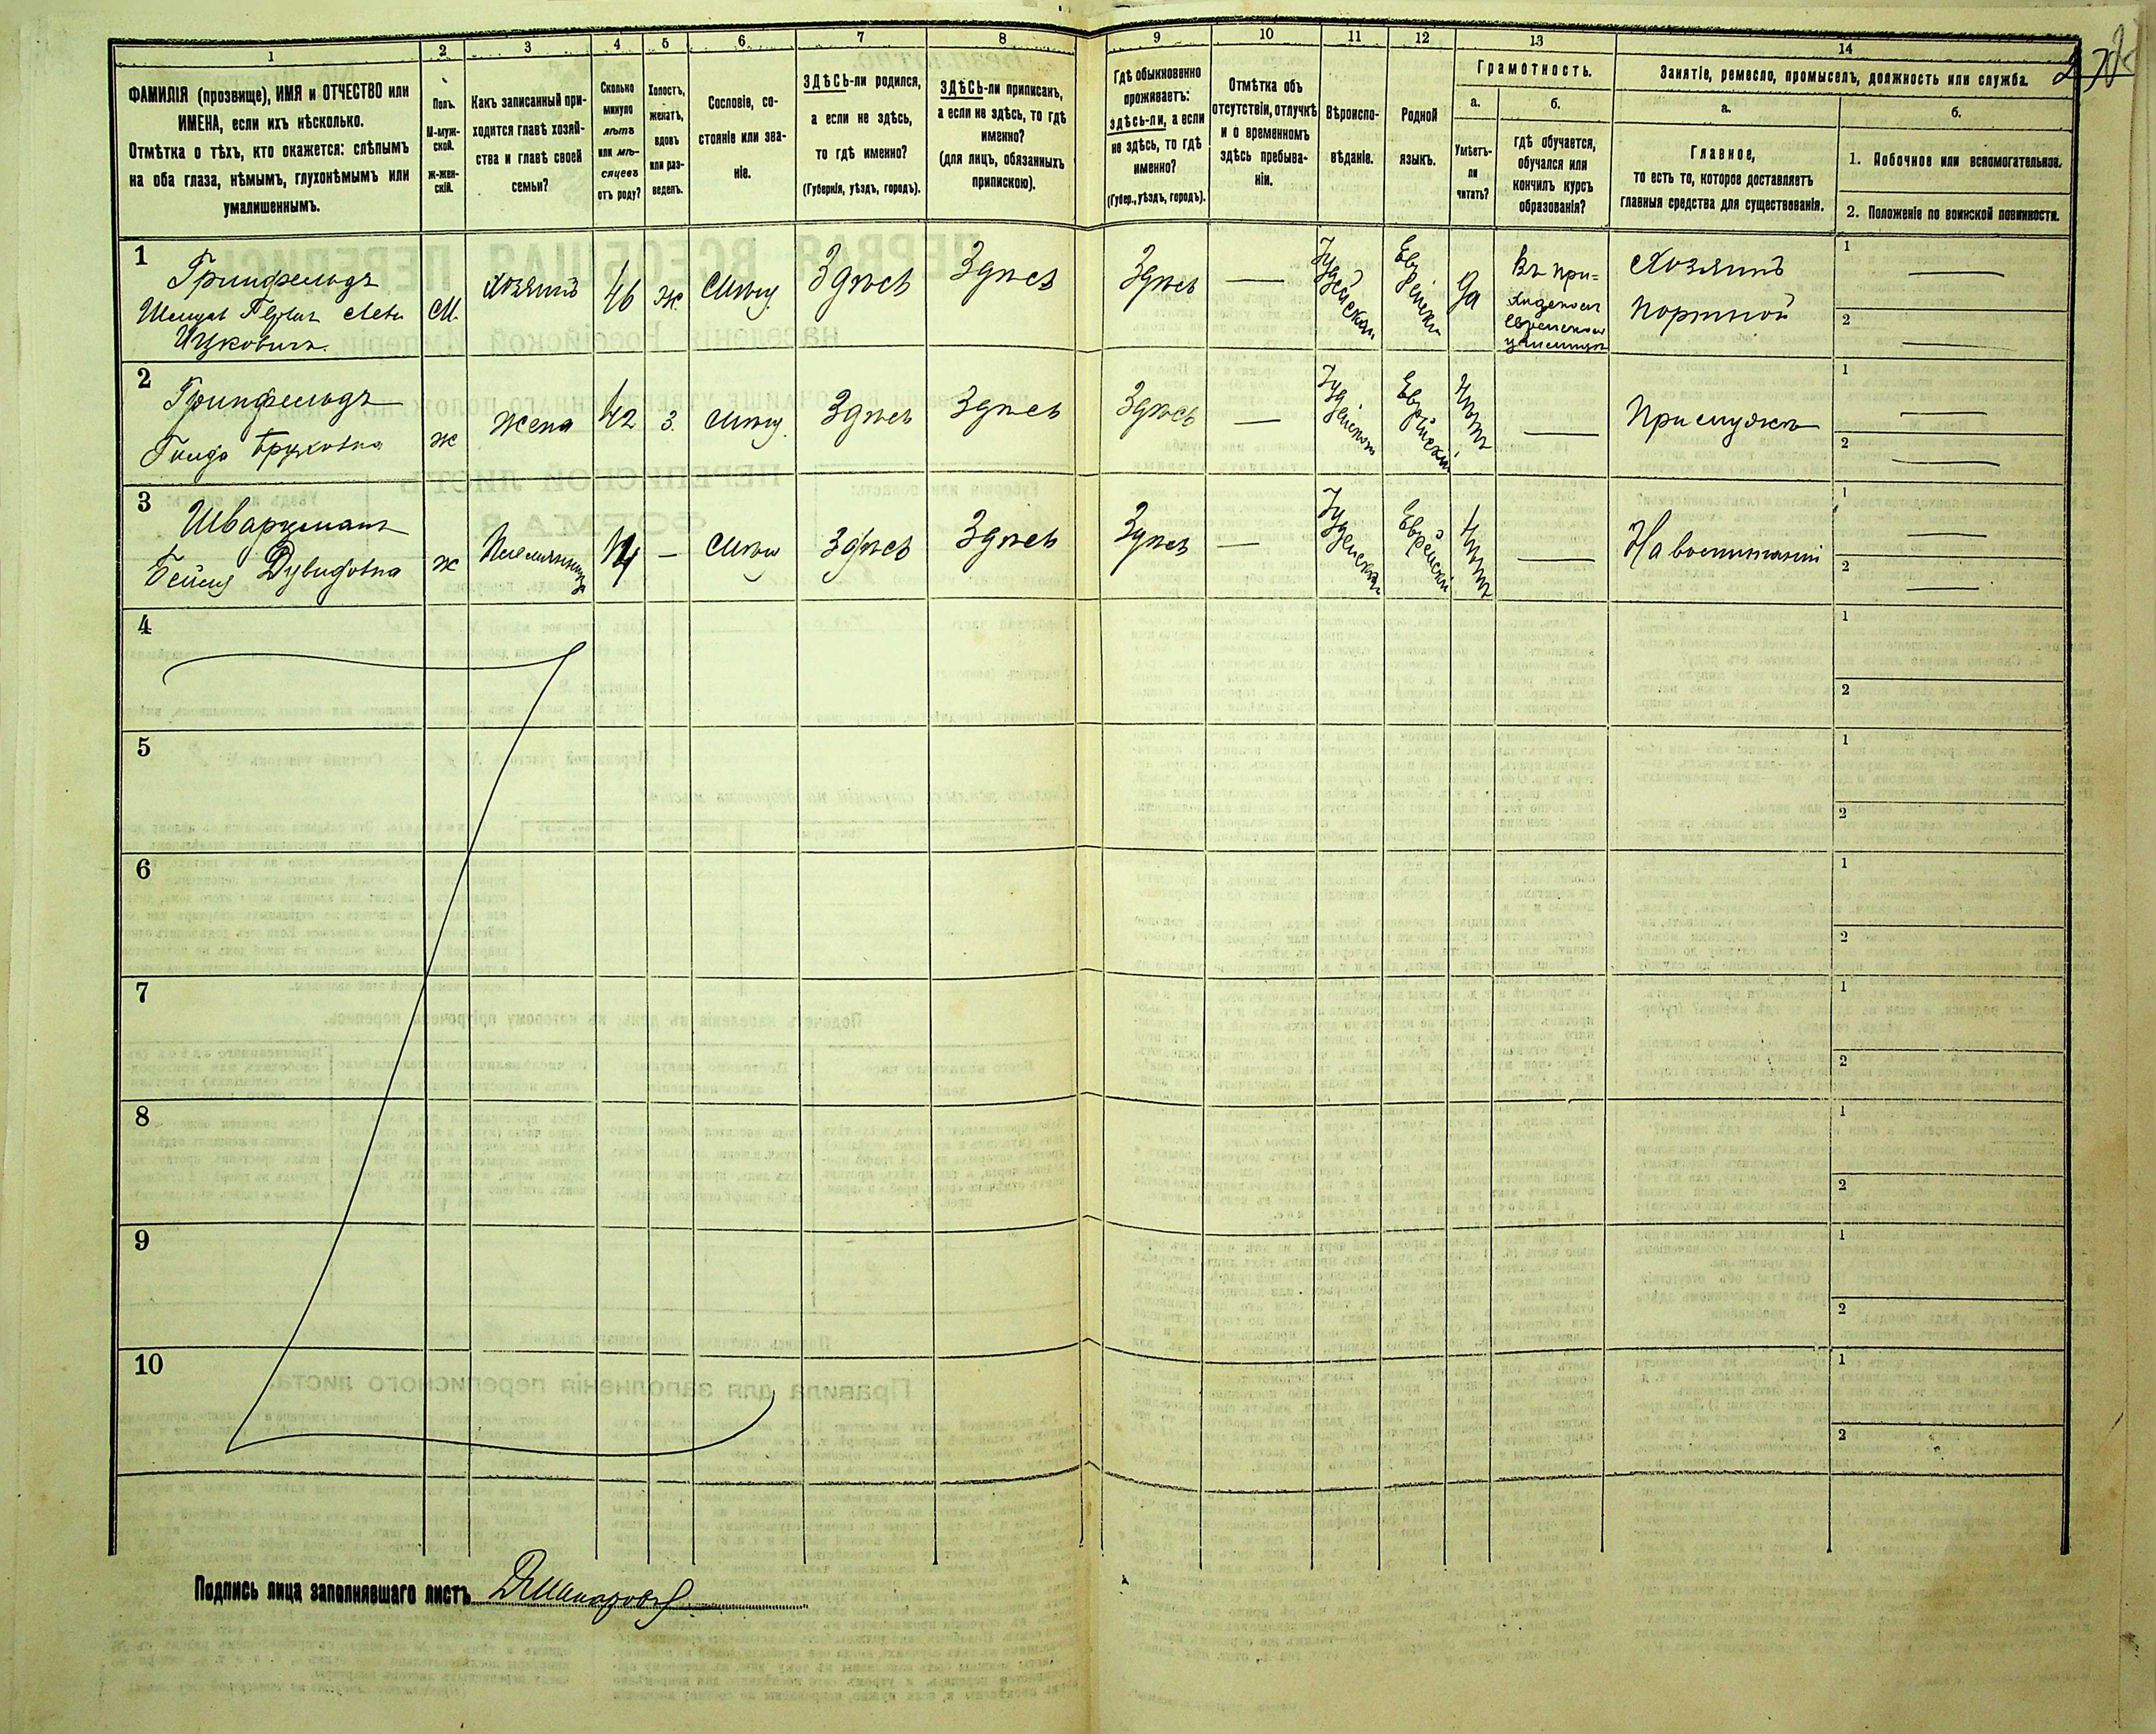 1 2 3 4 5 6 7 8 9 10 11 12 13 14
ФАМИЛІЯ (прозвище), ИМЯ и ОТЧЕСТВО или
ИМЕНА, если ихъ нѣсколько.
Отмѣтка о тѣхъ, кто окажется: слѣпымъ
на оба глаза, нѣмымъ, глухонѣмымъ или
умалишеннымъ.
Полъ.
М-муж-
ской.
ж-жен-
скій.
Какъ записанный при-
ходится главѣ хозяй-
ства и главѣ своей
семьи?
Сколько
минуло
лѣтъ
или мѣ-
сяцевъ
отъ роду?
Холостъ,
женатъ,
вдовъ
или раз-
веденъ.
Сословіе, со-
стояніе или зва-
ніе.
ЗДѢСЬ-ли родился,
а если не здѣсь,
то гдѣ именно?
(Губернія, уѣздъ, городъ).
ЗДѢСЬ-ли приписанъ,
а если не здѣсь, то гдѣ
именно?
(для лицъ, обязанныхъ
припискою).
Гдѣ обыкновенно
проживаетъ:
здѣсь-ли, а если
не здѣсь, то гдѣ
именно?
(Губер., уѣздъ, городъ).
Отмѣтка объ
отсутствіи, отлучкѣ
и о временномъ
здѣсь пребыва-
ніи.
Вѣроиспо-
вѣданіе.
Родной
языкъ.
Грамотность.
а.
Умѣетъ-
ли
читать?
б.
гдѣ обучается,
обучался или
кончилъ курсъ
образованія?
Занятіе, ремесло, промыселъ, должность или служба.
а.
Главное,
то есть то, которое доставляетъ
главныя средства для существованія.
б.
1. Побочное или вспомогательное.
2. Положеніе по воинской повинности.
1
Гринфельдъ
Лейб
Ицковичъ
М.
Хозяинъ
46
ж.
Мѣщ.
Здѣсь
Здѣсь
Здѣсь
—
Іудейское
Еврейскій
Да
Въ при-
ходскомъ
еврейском
училищѣ
Хозяинъ
Портной
1 —
2 —
2
Гринфельдъ
Бруховна
ж
Жена
42
З.
Мѣщ.
Здѣсь
Здѣсь
Здѣсь
—
Іудейское
Еврейскій
Нѣтъ
—
При мужѣ
1 —
2 —
3
Шварцманъ
Бейля Дувидовна
ж
Племянница
14
—
Мѣщ
Здѣсь
Здѣсь
Здѣсь
—
Іудейское
Еврейскій
Нѣтъ
—
На воспитаніи
1 —
2 —
4
1
2
5
1
2
6
1
2
7
1
2
8
1
2
9
1
2
10
1
2
Подпись лица заполнявшаго листъ